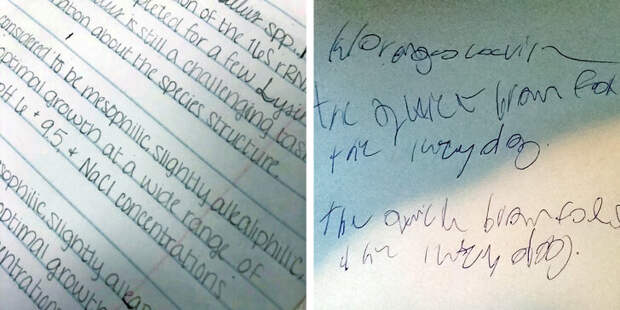 spp.
tion of the 16S rRN
pleted for a few Lysi
is still a challenging task
mation about the species structure
considered to be mesophilic, slightly alkaliphilic,
optimal growth at a wide range of
pH 6 & 9.5 & NaCl concentrations
sophilic, slightly alkal
optimal growth
ntration
the quick brown fox
the lazy dog.
the quick brown
the lazy dog.